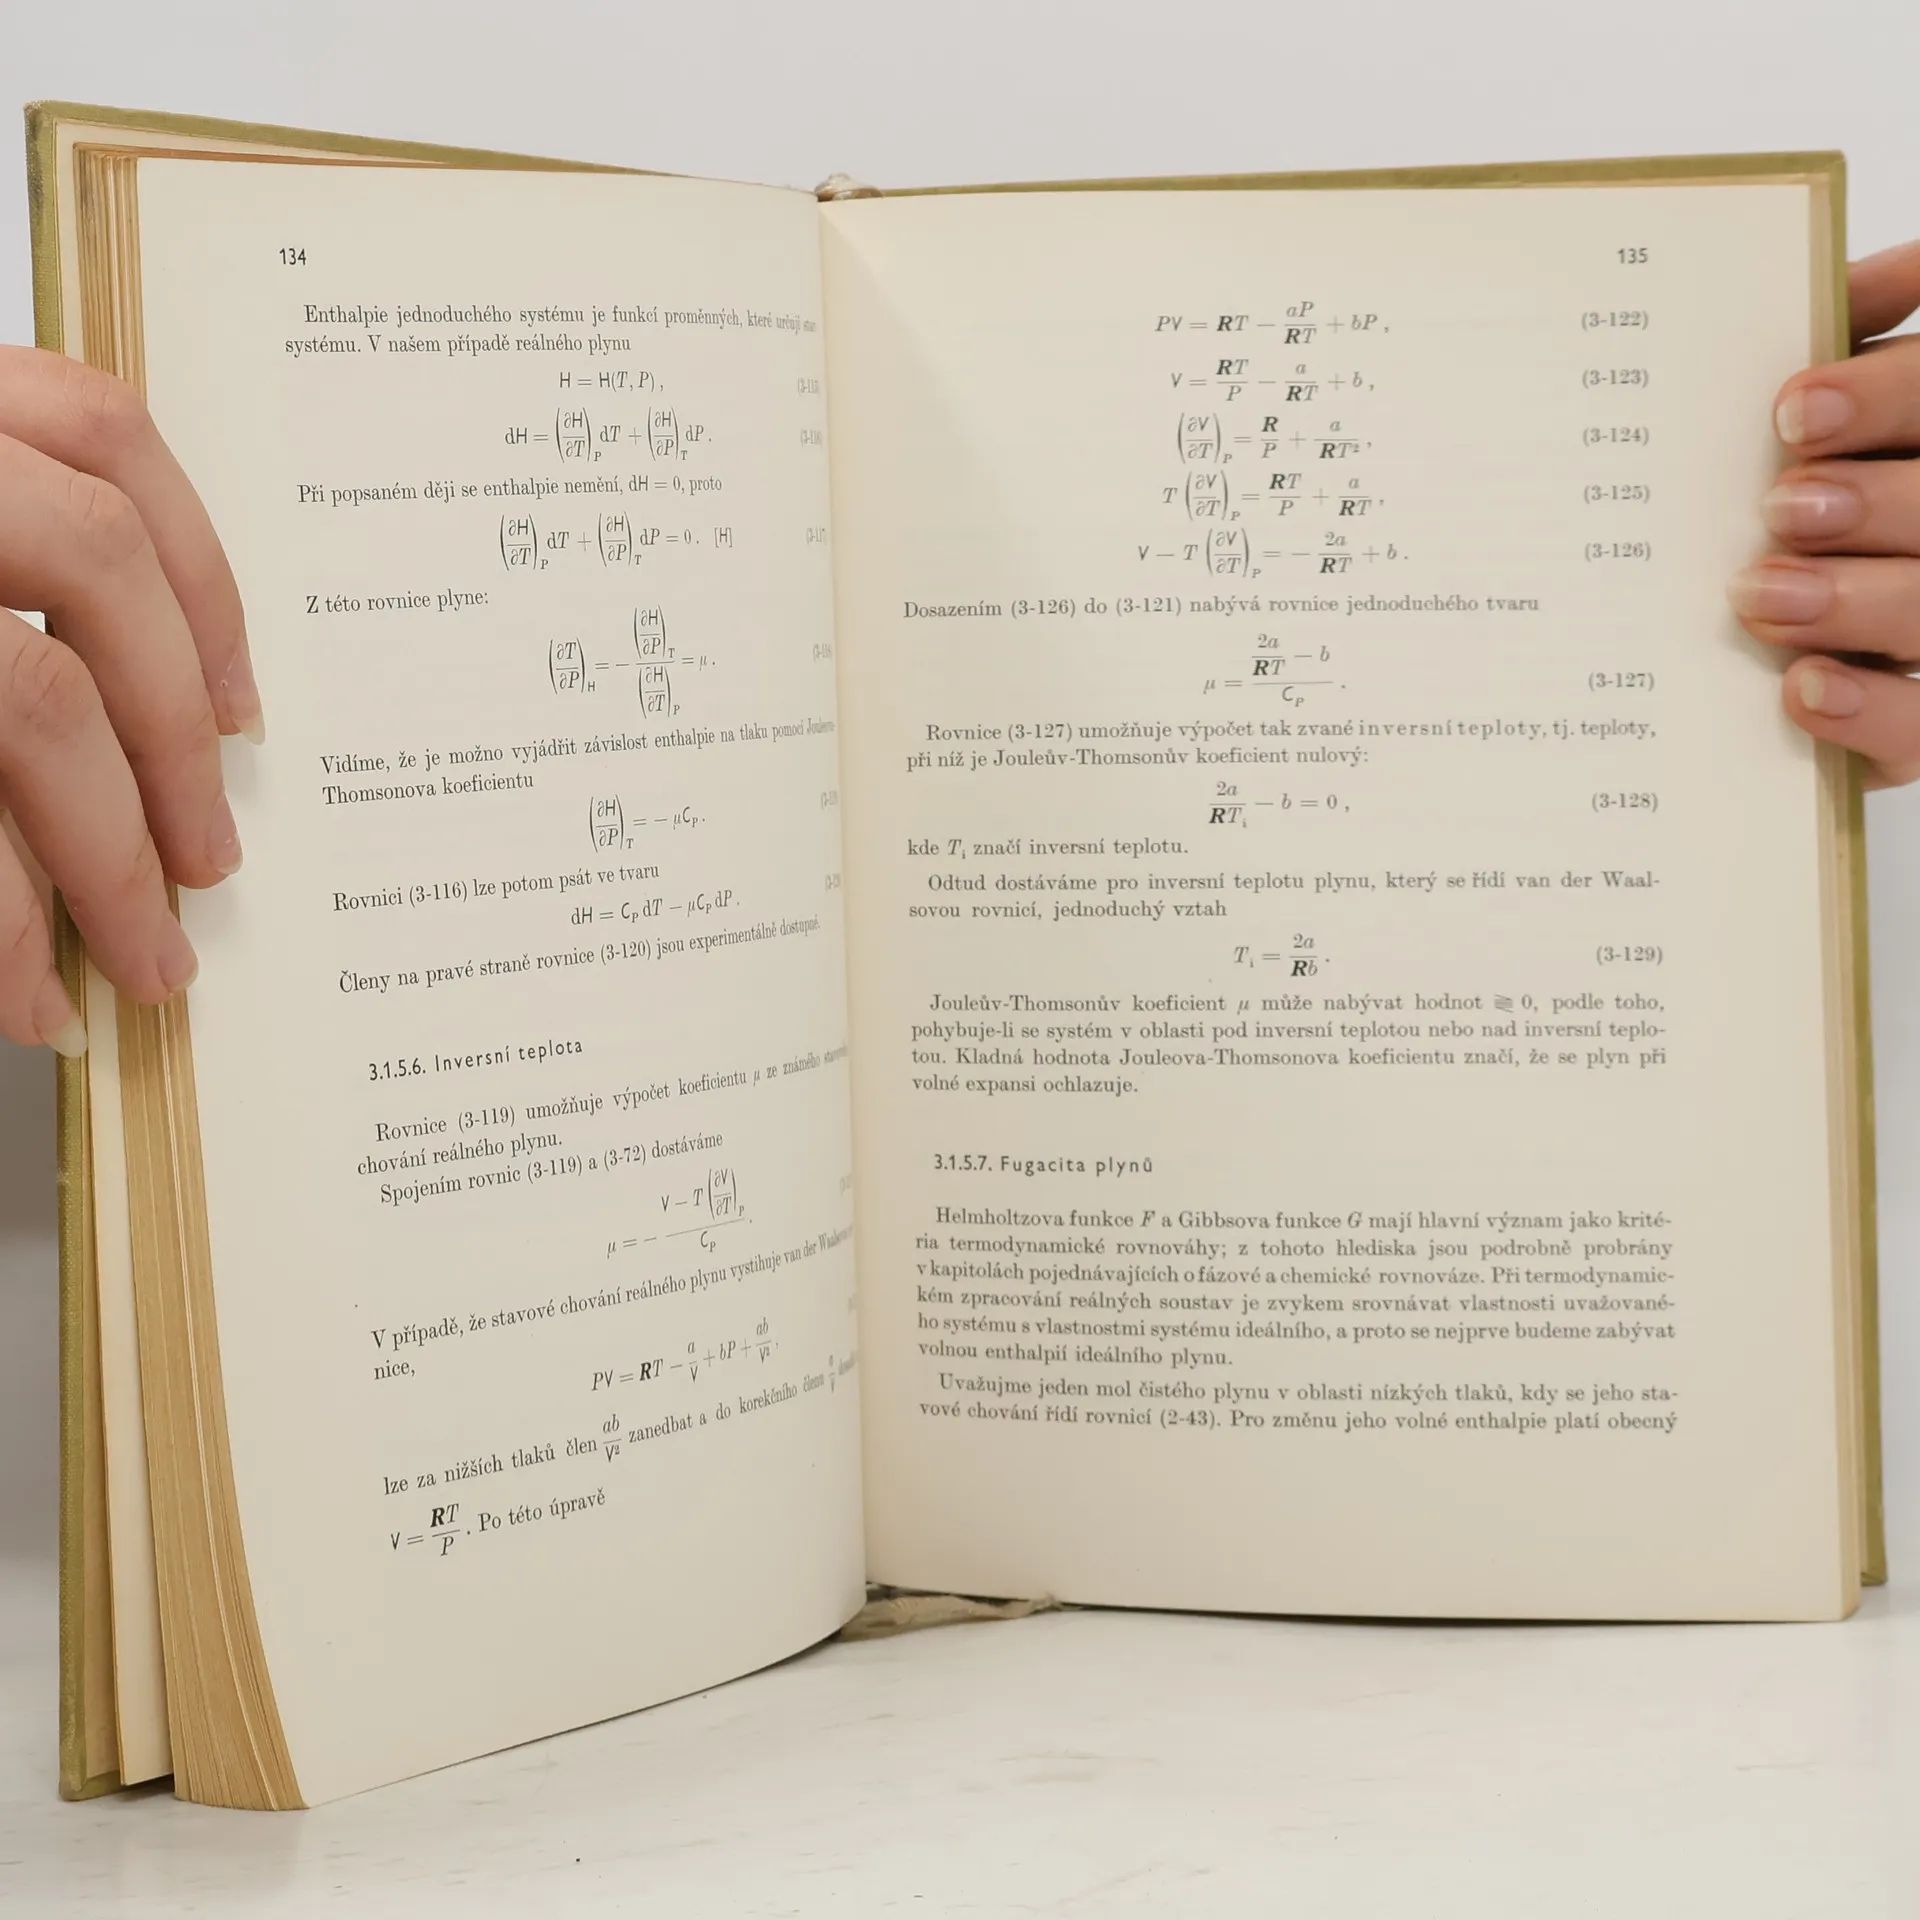 134
Enthalpie jednoduchého systému je funkcí proměnných, které určují stav
systému. V našem případě reálného plynu
H = H(T, P),
dH = (∂H/∂T)_P dT + (∂H/∂P)_T dP. (3-116)
Při popsaném ději se enthalpie nemění, dH = 0, proto
(∂H/∂T)_P dT + (∂H/∂P)_T dP = 0. [H] (3-117)
Z této rovnice plyne:
(∂T/∂P)_H = − (∂H/∂P)_T / (∂H/∂T)_P = μ.
Vidíme, že je možno vyjádřit závislost enthalpie na tlaku pomocí Jouleova-
Thomsonova koeficientu
(∂H/∂P)_T = − μC_P.
Rovnici (3-116) lze potom psát ve tvaru
dH = C_P dT − μC_P dP.
Členy na pravé straně rovnice (3-120) jsou experimentálně dostupné.
3.1.5.6. Inversní teplota
Rovnice (3-119) umožňuje výpočet koeficientu μ ze známého
chování reálného plynu.
Spojením rovnic (3-119) a (3-72) dostáváme
μ = − (V − T (∂V/∂T)_P) / C_P.
V případě, že stavové chování reálného plynu vystihuje van der
nice,
PV = RT − a/V + bP + ab/V²,
lze za nižších tlaků člen ab/V² zanedbat a do korekčního členu a/V
V = RT/P. Po této úpravě
135
PV = RT − aP/RT + bP, (3-122)
V = RT/P − a/RT + b, (3-123)
(∂V/∂T)_P = R/P + a/RT², (3-124)
T (∂V/∂T)_P = RT/P + a/RT, (3-125)
V − T (∂V/∂T)_P = − 2a/RT + b. (3-126)
Dosazením (3-126) do (3-121) nabývá rovnice jednoduchého tvaru
μ = (2a/RT − b) / C_P. (3-127)
Rovnice (3-127) umožňuje výpočet tak zvané inversní teploty, tj. teploty,
při níž je Jouleův-Thomsonův koeficient nulový:
2a/RT_i − b = 0, (3-128)
kde T_i značí inversní teplotu.
Odtud dostáváme pro inversní teplotu plynu, který se řídí van der Waal-
sovou rovnicí, jednoduchý vztah
T_i = 2a/Rb. (3-129)
Jouleův-Thomsonův koeficient μ může nabývat hodnot ⪌ 0, podle toho,
pohybuje-li se systém v oblasti pod inversní teplotou nebo nad inversní teplo-
tou. Kladná hodnota Jouleova-Thomsonova koeficientu značí, že se plyn při
volné expansi ochlazuje.
3.1.5.7. Fugacita plynů
Helmholtzova funkce F a Gibbsova funkce G mají hlavní význam jako krité-
ria termodynamické rovnováhy; z tohoto hlediska jsou podrobně probrány
v kapitolách pojednávajících o fázové a chemické rovnováze. Při termodynamic-
kém zpracování reálných soustav je zvykem srovnávat vlastnosti uvažované-
ho systému s vlastnostmi systému ideálního, a proto se nejprve budeme zabývat
volnou enthalpií ideálního plynu.
Uvažujme jeden mol čistého plynu v oblasti nízkých tlaků, kdy se jeho sta-
vové chování řídí rovnicí (2-43). Pro změnu jeho volné enthalpie platí obecný